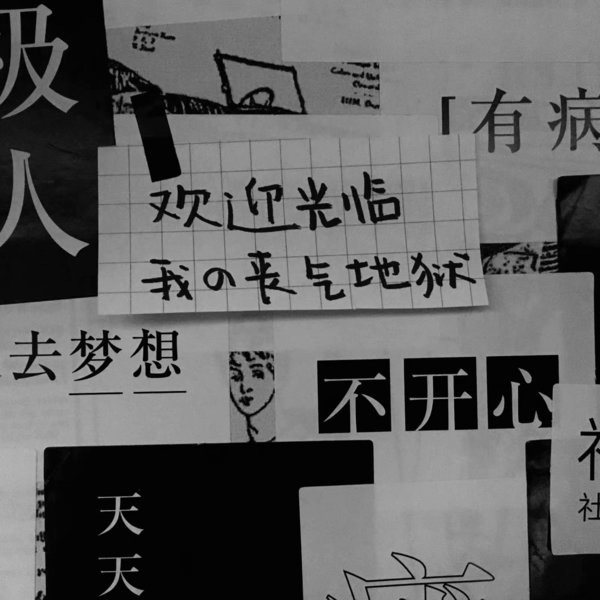 极
人
「有病
欢迎光临
我の丧气地狱
去梦想
不开心
天
天
社